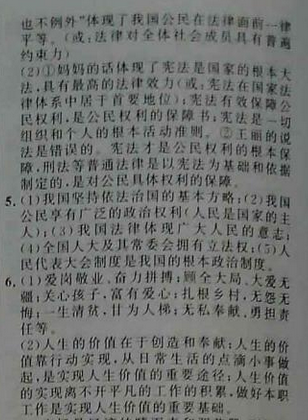 也不例外”体现了我国公民在法律面前一律
平等。(或:法律对全体社会成员具有普遍
约束力)
(2)①妈妈的话体现了宪法是国家的根本大
法,具有最高的法律效力(或:宪法在国家法
律体系中居于首要地位);宪法有效保障公
民权利,是公民权利的保障书;宪法是一切
组织和个人的根本活动准则。②王丽的说
法是错误的。宪法才是公民权利的根本保
障,刑法等普通法律是以宪法为基础和依据
制定的,是对公民具体权利的保障。
5.(1)我国坚持依法治国的基本方略;(2)我国
公民享有广泛的政治权利(人民是国家的主
人);(3)我国法律体现广大人民的意志;
(4)全国人大及其常委会拥有立法权;(5)人
民代表大会制度是我国的根本政治制度。
6.(1)爱岗敬业、奋力拼搏;顾全大局、大爱无
疆;关心孩子,富有爱心;扎根乡村,无怨无
悔;一生清贫,甘为人梯;无私奉献,勇担责
任等。
(2)人生的价值在于创造和奉献;人生的价
值靠行动实现,从日常生活的点滴小事做
起,是实现人生价值的重要途径;人生价值
的实现离不开平凡的工作的积累,做好本职
工作是实现人生价值的重要基础。